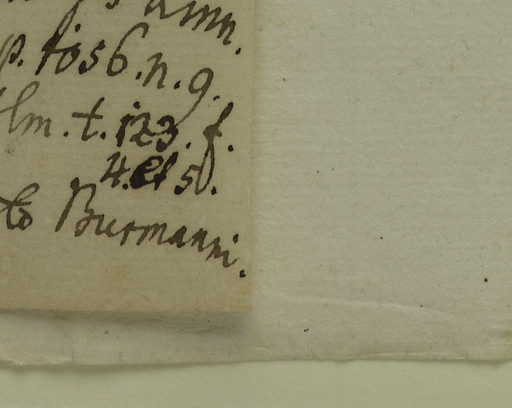 p. 1056. n. 9.
lm. t. 123. f.
4. et 5.
Burmanni.